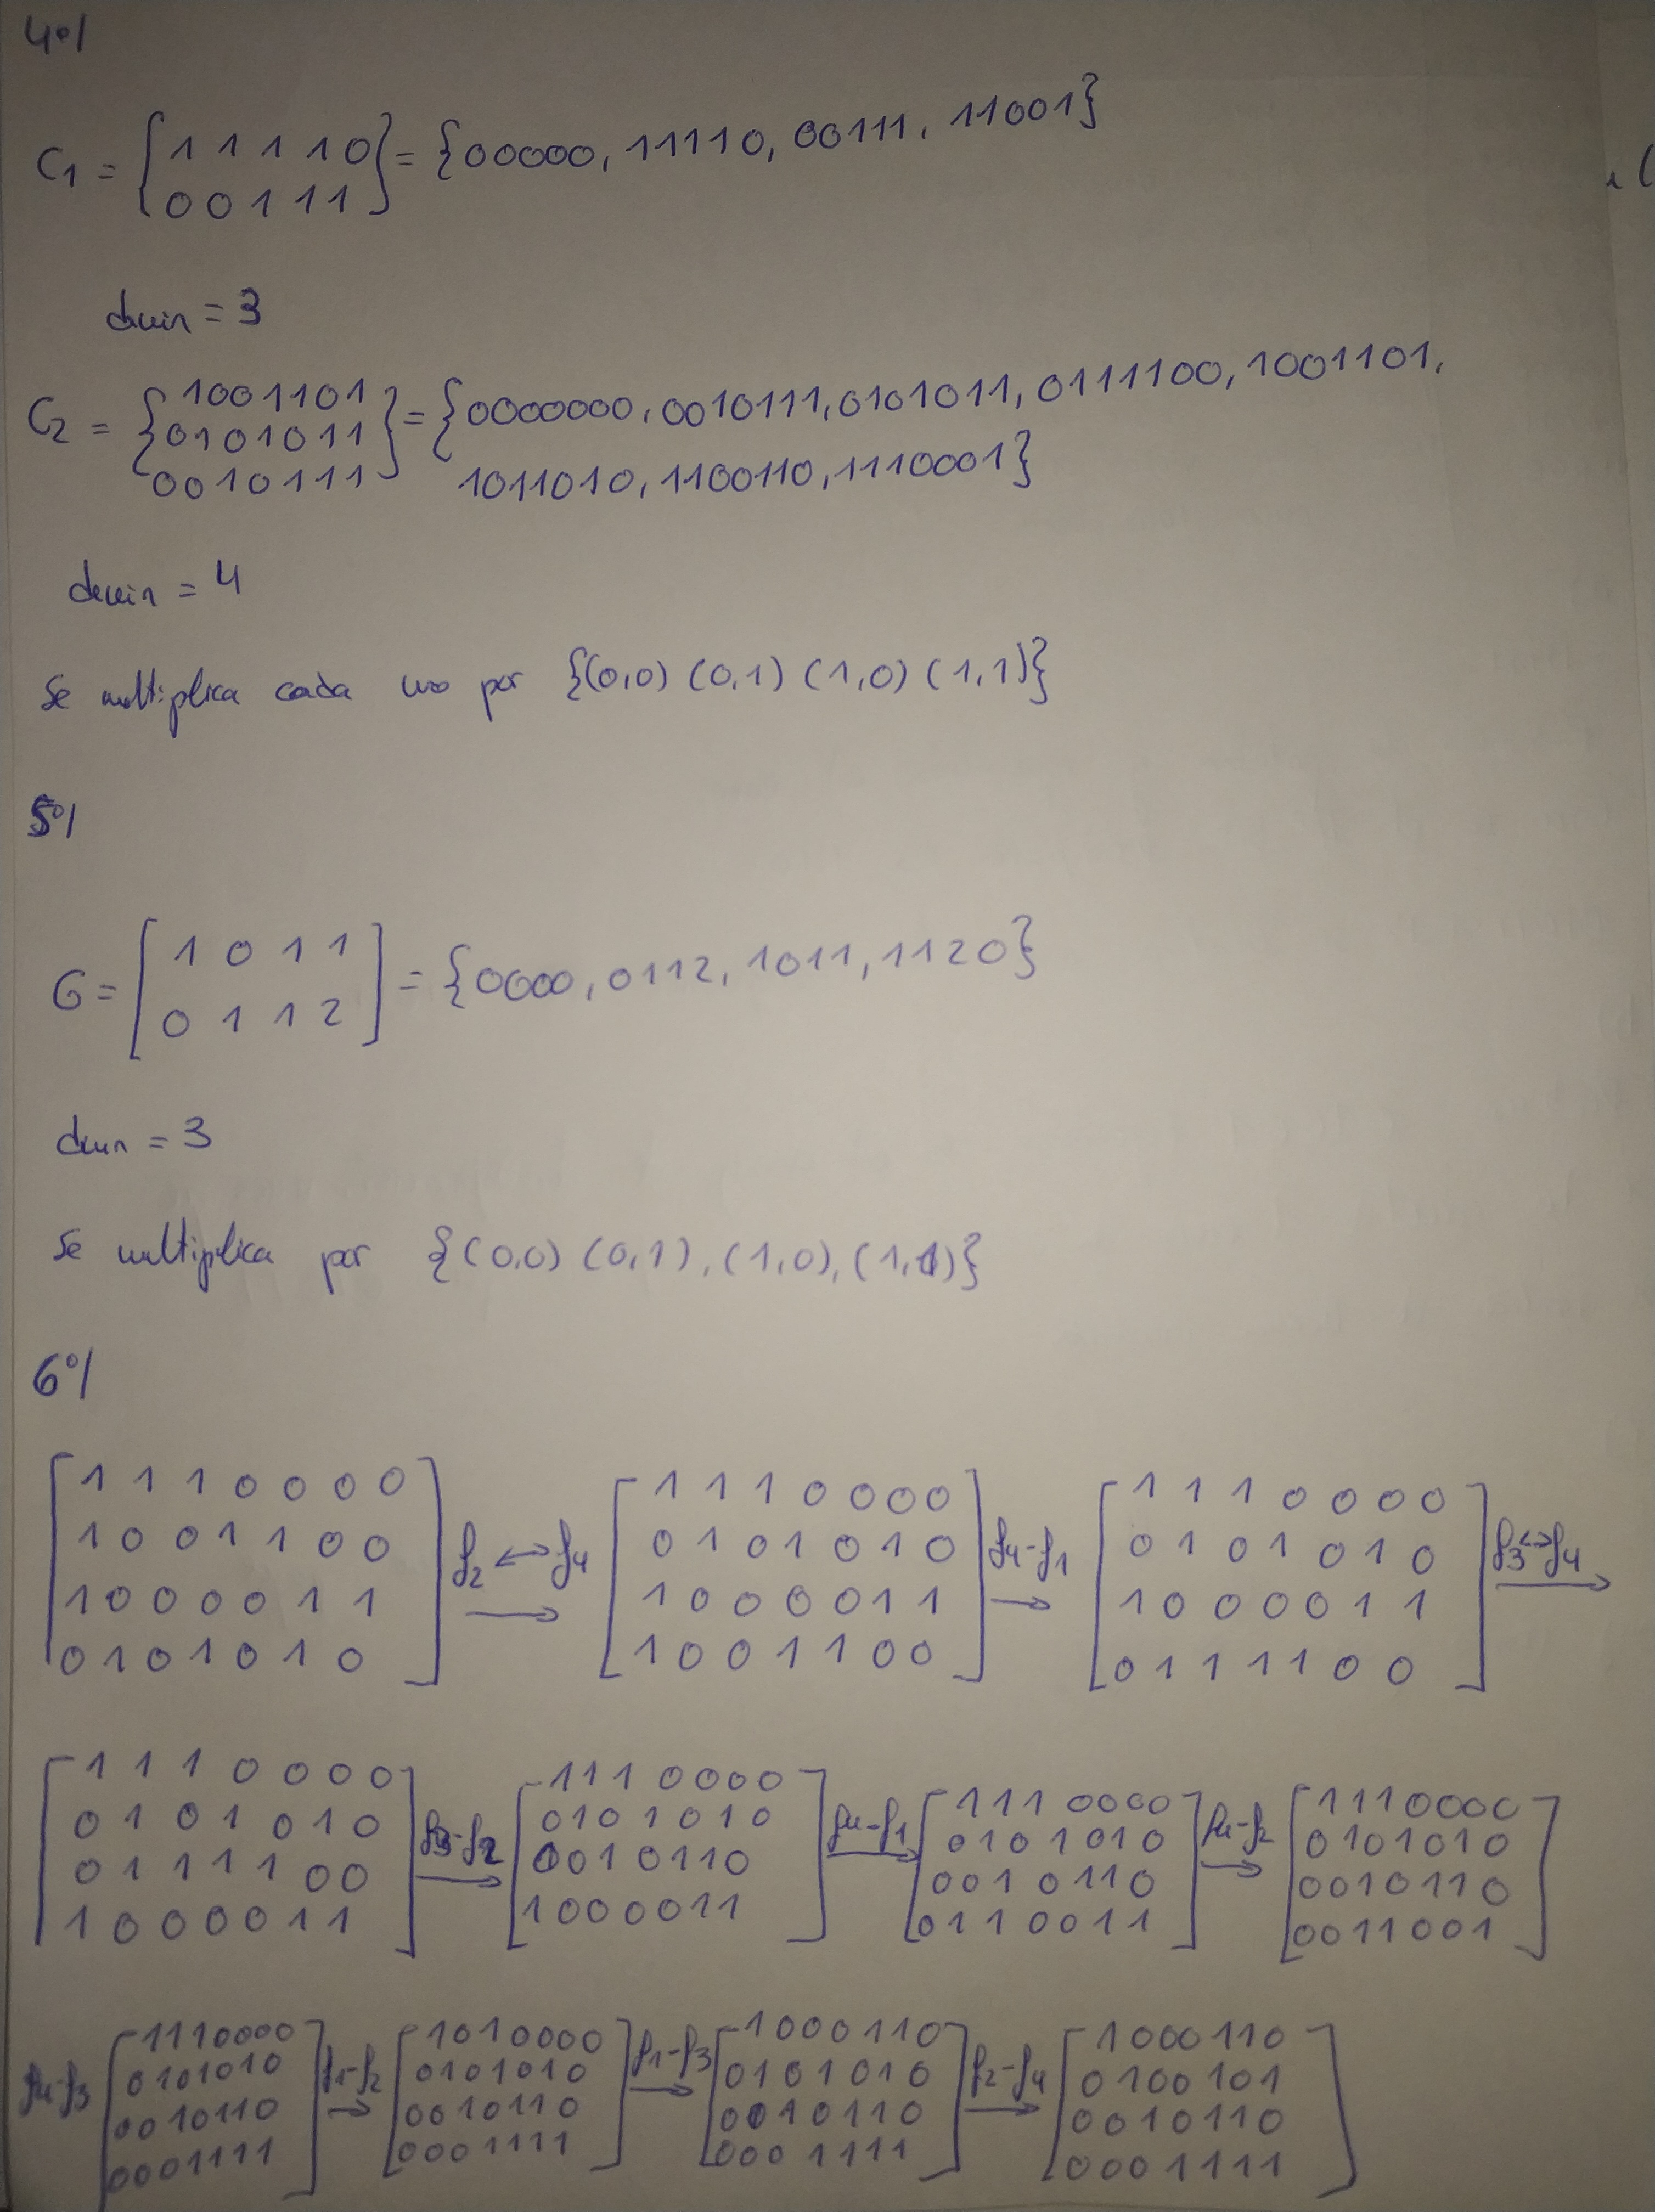 4º/
C₁ = { 1 1 1 1 0
0 0 1 1 1 } = {00000, 11110, 00111, 11001}
dmin = 3
C₂ = { 1001101
0101011
0010111 } = {0000000, 0010111, 0101011, 0111100, 1001101,
1011010, 1100110, 1110001}
dmin = 4
Se multiplica cada uno por {(0,0) (0,1) (1,0) (1,1)}
5º/
G = [ 1 0 1 1
0 1 1 2 ] = {0000, 0112, 1011, 1120}
dmin = 3
Se multiplica por {(0,0) (0,1), (1,0), (1,1)}
6º/
[ 1 1 1 0 0 0 0
1 0 0 1 1 0 0
1 0 0 0 0 1 1
0 1 0 1 0 1 0 ]
f₂ ↔ f₄ →
[ 1 1 1 0 0 0 0
0 1 0 1 0 1 0
1 0 0 0 0 1 1
1 0 0 1 1 0 0 ]
f₄-f₁ →
[ 1 1 1 0 0 0 0
0 1 0 1 0 1 0
1 0 0 0 0 1 1
0 1 1 1 1 0 0 ]
f₃↔f₄ →
[ 1 1 1 0 0 0 0
0 1 0 1 0 1 0
0 1 1 1 1 0 0
1 0 0 0 0 1 1 ]
f₃-f₂ →
[ 1110000
0101010
0010110
1000011 ]
f₄-f₁ →
[ 1110000
0101010
0010110
0110011 ]
f₄-f₂ →
[ 1110000
0101010
0010110
0011001 ]
f₄-f₃
[ 1110000
0101010
0010110
0001111 ]
f₁-f₂ →
[ 1010000
0101010
0010110
0001111 ]
f₁-f₃ →
[ 1000110
0101010
0010110
0001111 ]
f₂-f₄ →
[ 1000110
0100101
0010110
0001111 ]